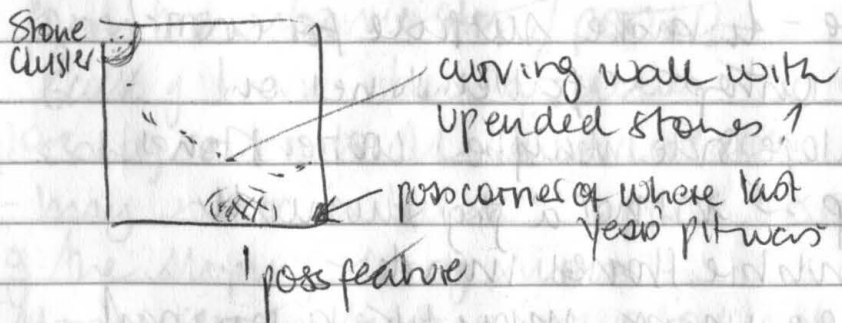 Stone
Cluster
curving wall with
upended stones?
poss corner of where last
years pit was
poss feature